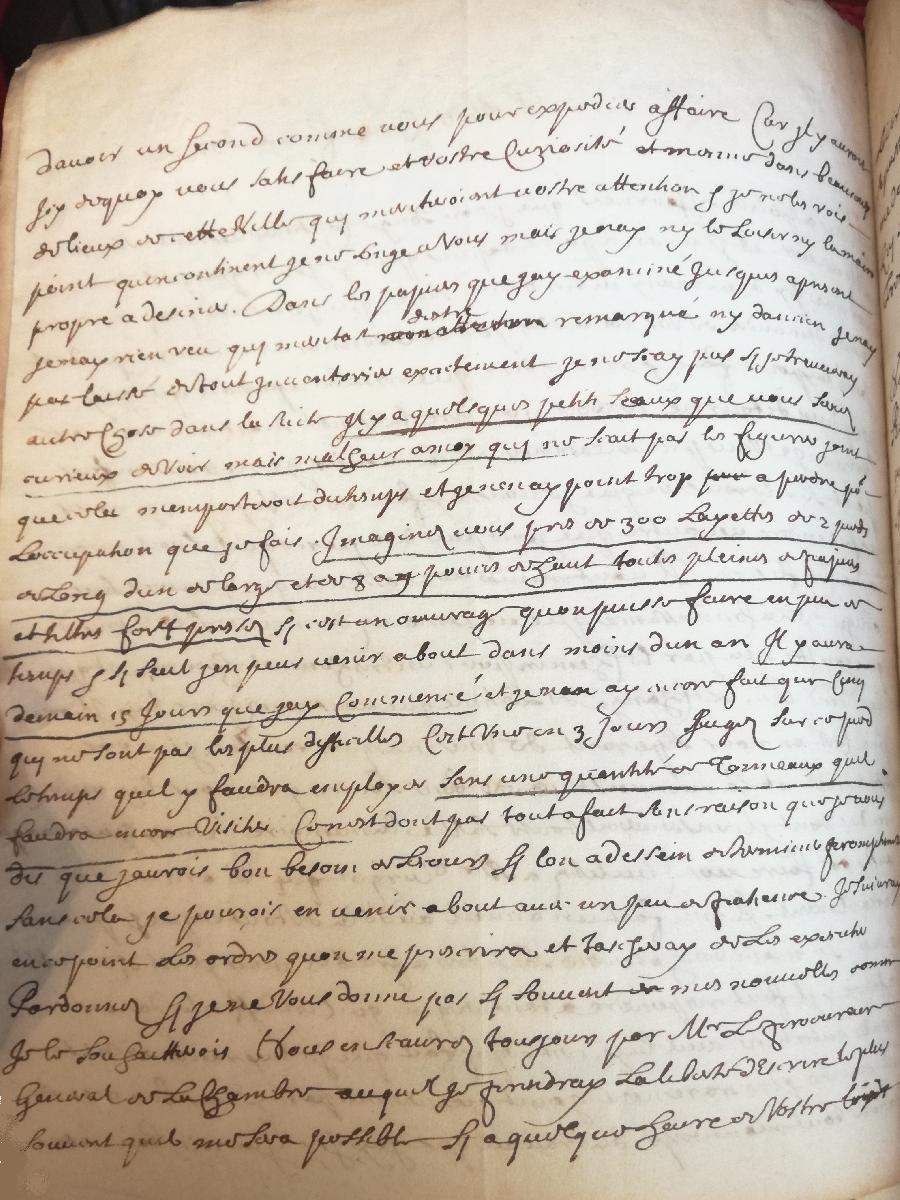 davoir un second comme vous pour expedier affaire Car jl y auroit
Jcy dequoy vous satisfaire et vostre Curiosité et mesme dans beaucoup
de lieux de cette Ville qui meritroient vostre attention Et je ne les vois
point quincontinent je ne songe a Vous mais jenay ny le Loisir ny la main
propre a desiner. Dans les papiers que jay examiné Jusques apresent
jenay rien veu qui meritast destre remarqué ny dancien jenay
pas laissé detout Jnventorier exactement je ne scay pas sy je trouveray
autre Chose dans la suite Jl y a quelques petits Seaux que vous seriez
curieux de Voir mais malheur a moy qui ne scait pas les figurer joint
que cela memporteroit du temps et je nen ay point trop a perdre pr
Loccupation que je fais. Jmaginez vous pres de 300 Layettes de 2 pieds
de Long dun de large et de 8 a 9 pouces de haut toutes pleines de papiers
et tiltres fort pressez sy cest un ouvrage quon puisse faire en peu de
temps Et sy seul jen peus venir about dans moins dun an Jl y aura
demain 15 Jours que jay Commencé et je nen ay encore fait que Cinq
qui ne sont pas les plus difficilles Cest Une en 3 Jours Jugez sur ce pied
le temps quil y faudra employer sans une quantité de Tonneaux quil
faudra encore Visiter Ce nest dont pas tout a fait sans raison que je vous
dis que jaurois bon besoin de secours sy lon a dessein de terminer promptement
sans cela je pourois en venir about avec un peu de patience. Je suivray
en ce point Les ordres quon me prescrira et Tascheray de Les executer
Pardonnez sy je ne Vous donne pas sy souvent de mes nouvelles comme
Je le souhaitterois Vous en sçaurez toujours par Mr Le procureur
General de La Chambre auquel je prendray La liberté dEscrire le plus
souvent quil me sera possible sy a quelque heure de Vostre loisir